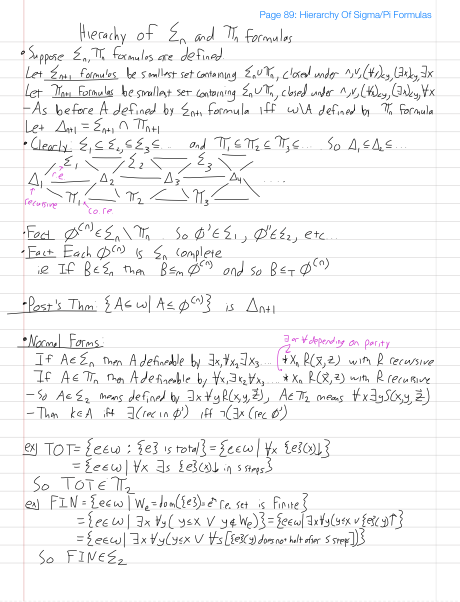 Page 89: Hierarchy Of Sigma/Pi Formulas
Hierachy of Σₙ and Πₙ formulas
• Suppose Σₙ, Πₙ formulas are defined
Let Σₙ₊₁ formulas be smallest set containing Σₙ∪Πₙ, closed under ∧,∨,(∀x)<y,(∃x)<y,∃x
Let Πₙ₊₁ formulas be smallest set containing Σₙ∪Πₙ, closed under ∧,∨,(∀x)<y,(∃x)<y,∀x
- As before A defined by Σₙ₊₁ formula iff ω\A defined by Π formula
Let Δₙ₊₁ = Σₙ₊₁ ∩ Πₙ₊₁
• Clearly Σ₁⊆Σ₂⊆Σ₃⊆... and Π₁⊆Π₂⊆Π₃⊆... So Δ₁⊆Δ₂⊆...
Σ₁ Σ₂ Σ₃
r.e
Δ₁ Δ₂ Δ₃ Δ₄ ...
Π₁ Π₂ Π₃
recursive co.re
• Fact ∅⁽ⁿ⁾∈Σₙ\Πₙ So ∅'∈Σ₁, ∅''∈Σ₂, etc...
• Fact Each ∅⁽ⁿ⁾ is Σₙ complete
ie If B∈Σₙ then B≤ₘ ∅⁽ⁿ⁾ and so B≤_T ∅⁽ⁿ⁾
• Post's Thm: {A⊆ω | A≤∅⁽ⁿ⁾} is Δₙ₊₁
• Normal Forms:
∃ or ∀ depending on parity
If A∈Σₙ then A defineable by ∃x₁∀x₂∃x₃... *xₙ R(x̄,z) with R recursive
If A∈Πₙ then A defineable by ∀x₁∃x₂∀x₃... *xₙ R(x̄,z) with R recursive
- So A∈Σ₂ means defined by ∃x∀yR(x,y,z), A∈Π₂ means ∀x∃yS(x,y,z)
- Then k∈A iff ∃(rec in ∅') iff ¬(∃x(rec ∅')
ex) TOT={e∈ω : {e} is total}={e∈ω | ∀x {e}(x)↓}
={e∈ω | ∀x ∃s {e}(x)↓ in s steps}
So TOT∈Π₂
ex) FIN={e∈ω | Wₑ=dom({e})=eᵗʰ re. set is finite}
={e∈ω | ∃x∀y(y≤x ∨ y∉Wₑ)}={e∈ω|∃x∀y(y≤x ∨ {e}(y)↑}
={e∈ω | ∃x∀y(y≤x ∨ ∀s[{e}(y) does not halt after s steps])}
So FIN∈Σ₂